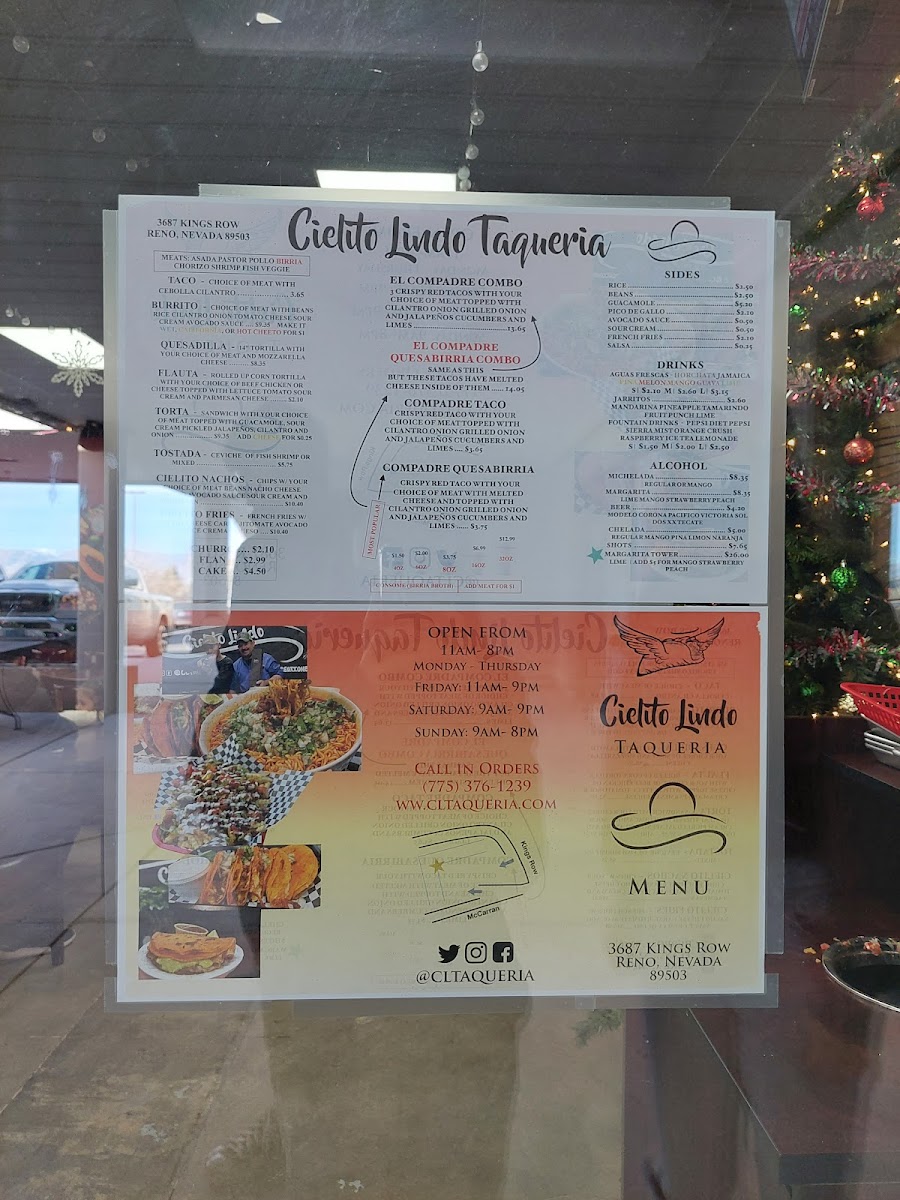 3687 KINGS ROW
RENO, NEVADA 89503
Cielito Lindo Taqueria
MEATS: ASADA PASTOR POLLO BIRRIA
CHORIZO SHRIMP FISH VEGGIE
TACO - CHOICE OF MEAT WITH
CEBOLLA CILANTRO 3.65
BURRITO - CHOICE OF MEAT WITH BEANS
RICE CILANTRO ONION TOMATO CHEESE SOUR
CREAM AVOCADO SAUCE .... $9.35 MAKE IT
OR HOT CHEETO FOR $1
QUESADILLA - 14" TORTILLA WITH
YOUR CHOICE OF MEAT AND MOZZARELLA
CHEESE $8.35
FLAUTA - ROLLED UP CORN TORTILLA
WITH YOUR CHOICE OF BEEF CHICKEN OR
CHEESE TOPPED WITH LETTUCE TOMATO SOUR
CREAM PICKLED JALAPEÑOS, CILANTRO SOUR
CREAM AND PARMESAN CHEESE $2.10
TORTA - SANDWICH WITH YOUR CHOICE
OF MEAT TOPPED WITH GUACAMOLE, SOUR
CREAM PICKLED JALAPEÑOS, CILANTRO AND
ONION $9.35 ADD CHEESE FOR $0.25
TOSTADA - CEVICHE OF FISH SHRIMP OR
MIXED $5.75
CIELITO NACHOS - CHIPS W/ YOUR
CHOICE OF MEAT BEANS NACHO CHEESE
AVOCADO SAUCE SOUR CREAM AND
$10.40
O FRIES - FRENCH FRIES W/
AVOCADO
$10.40
CHURRO.... $2.10
FLAN... $2.99
CAKE... $4.50
EL COMPADRE COMBO
3 CRISPY RED TACOS WITH YOUR
CHOICE OF MEAT TOPPED WITH
CILANTRO ONION GRILLED ONION
AND JALAPEÑOS CUCUMBERS AND
LIMES 13.65
EL COMPADRE
QUESABIRRIA COMBO
SAME AS THIS
BUT THESE TACOS HAVE MELTED
CHEESE INSIDE OF THEM ...... 14.05
COMPADRE TACO
CRISPY RED TACO WITH YOUR
CHOICE OF MEAT TOPPED WITH
CILANTRO ONION GRILLED ONION
AND JALAPEÑOS CUCUMBERS AND
LIMES .... $3.65
COMPADRE QUESABIRRIA
CRISPY RED TACO WITH YOUR
CHOICE OF MEAT WITH MELTED
CHEESE AND TOPPED WITH
CILANTRO ONION GRILLED ONION
AND JALAPEÑOS CUCUMBERS AND
LIMES ...... $3.75
MOST POPULAR
$1.50 $2.00 $3.75 $6.99 $12.99
4OZ 6OZ 8OZ 16OZ 32OZ
CONSOME (BIRRIA BROTH) ADD MEAT FOR $1
SIDES
RICE $2.50
BEANS $2.50
GUACAMOLE $5.20
PICO DE GALLO $2.10
AVOCADO SAUCE $0.50
SOUR CREAM $0.50
FRENCH FRIES $2.10
SALSA $0.25
DRINKS
AGUAS FRESCAS - HORCHATA JAMAICA
PINA MELON MANGO GUAVA LIME
S: $2.10 M: $2.60 L: $3.15
JARRITOS $2.60
MANDARINA PINEAPPLE TAMARINDO
FRUIT PUNCH LIME
FOUNTAIN DRINKS - PEPSI DIET PEPSI
SIERRA MIST ORANGE CRUSH
RASPBERRY ICE TEA LEMONADE
S: $1.50 M: $2.00 L: $2.50
ALCOHOL
MICHELADA $8.35
REGULAR OR MANGO
MARGARITA $8.35
LIME MANGO STRAWBERRY PEACH
BEER $4.20
MODELO CORONA PACIFICO VICTORIA SOL
DOS XX TECATE
CHELADA $5.00
REGULAR MANGO PINA LIMON NARANJA
SHOTS $7.65
MARGARITA TOWER $26.00
LIME | ADD $5 FOR MANGO STRAWBERRY
PEACH
Cielito Lindo
OPEN FROM
11AM- 8PM
MONDAY - THURSDAY
FRIDAY: 11AM- 9PM
SATURDAY: 9AM- 9PM
SUNDAY: 9AM- 8PM
CALL IN ORDERS
(775) 376-1239
WWW.CLTAQUERIA.COM
Kings Row
McCarran
@CLTAQUERIA
Cielito Lindo
TAQUERIA
MENU
3687 KINGS ROW
RENO, NEVADA
89503